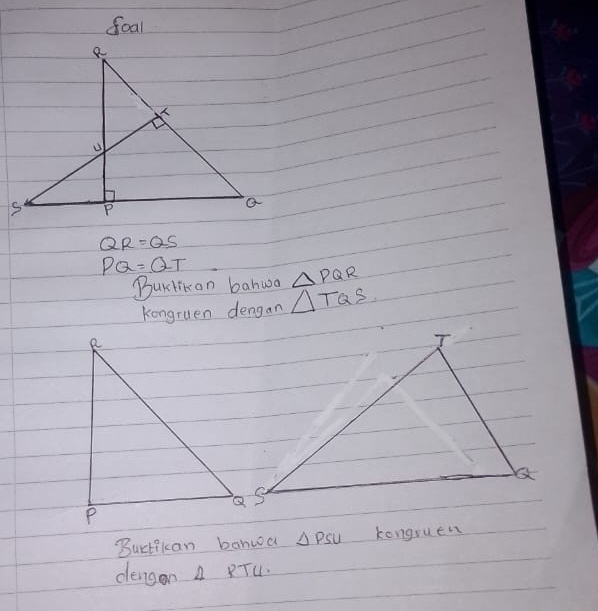 Soal
R
T
U
S P Q
QR = QS
PQ = QT
Buktikan bahwa △ PQR
kongruen dengan △ TQS.
R T
P Q S Q
Buktikan bahwa △ PSU kongruen
dengan △ RTU.